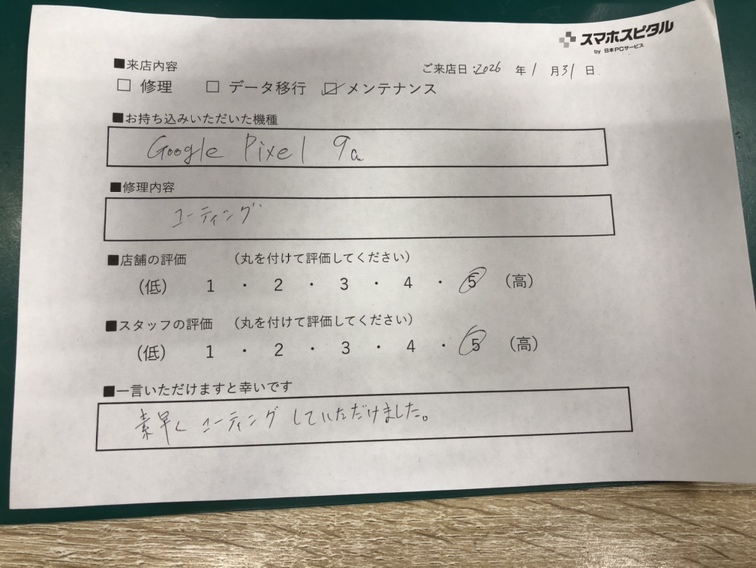 スマホスピタル
by 日本PCサービス
■来店内容
ご来店日:2026 年 1 月 31 日
□ 修理 □ データ移行 ☑ メンテナンス
■お持ち込みいただいた機種
Google Pixel 9a
■修理内容
コーティング
■店舗の評価 (丸を付けて評価してください)
(低) 1 ・ 2 ・ 3 ・ 4 ・ 5 (高)
■スタッフの評価 (丸を付けて評価してください)
(低) 1 ・ 2 ・ 3 ・ 4 ・ 5 (高)
■一言いただけますと幸いです
素早くコーティングしていただけました。